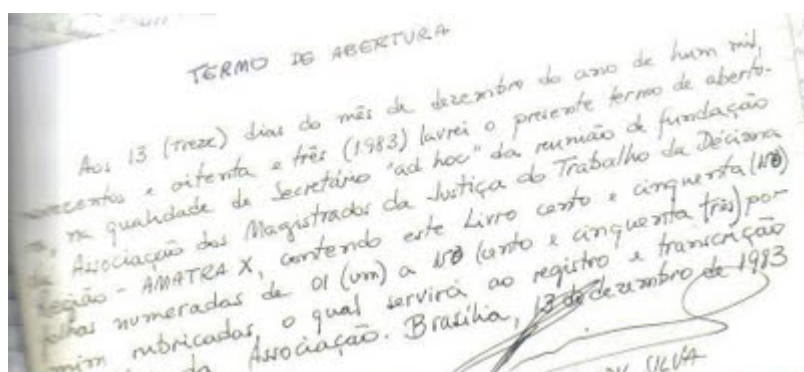 TERMO DE ABERTURA
Aos 13 (treze) dias do mês de dezembro do ano de hum mil,
novecentos e oitenta e três (1983) lavrei o presente termo de abertu-
ra, na qualidade de Secretário "ad hoc" da reunião de fundação
da Associação dos Magistrados da Justiça do Trabalho da Décima
Região - AMATRA X, contendo este Livro cento e cinquenta (150)
folhas numeradas de 01 (um) a 150 (cento e cinquenta três) por
mim rubricadas, o qual servirá ao registro e transcrição
da Associação. Brasília, 13 de dezembro de 1983
SILVA